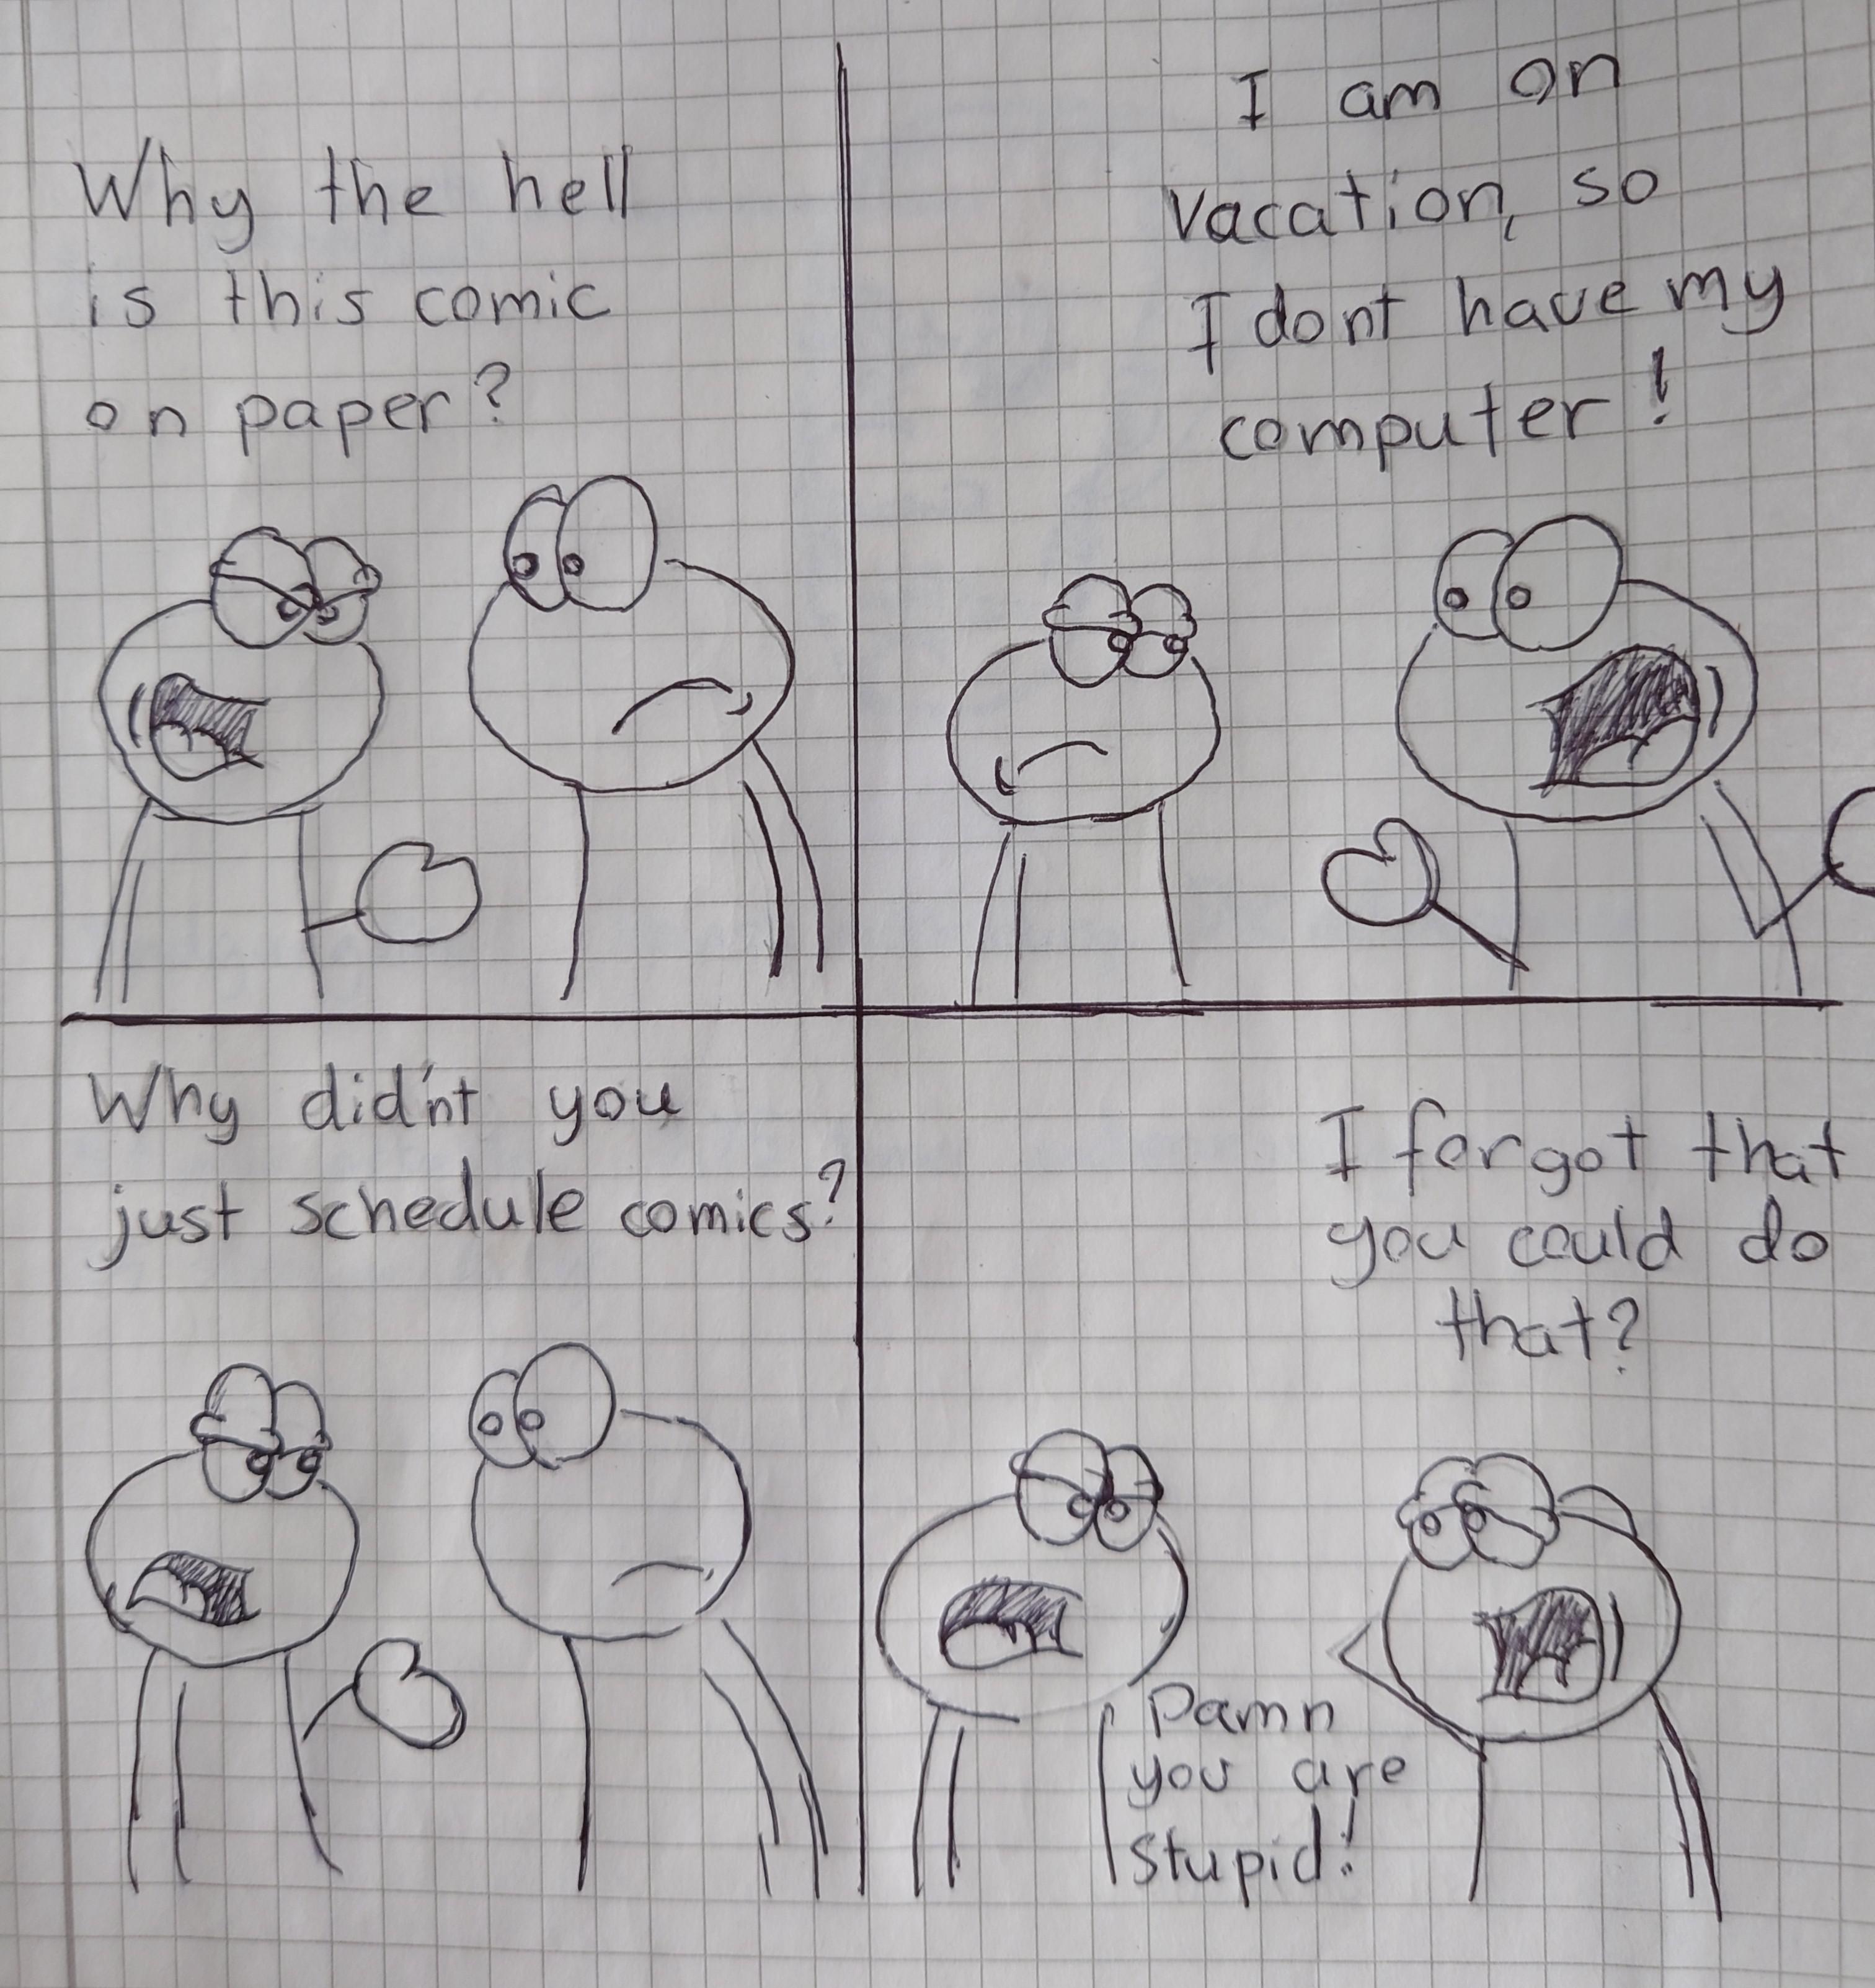 Why the hell
is this comic
on paper?
I am on
vacation, so
I dont have my
computer!
Why did'nt you
just schedule comics?
I forgot that
you could do
that?
Damn
you are
stupid!